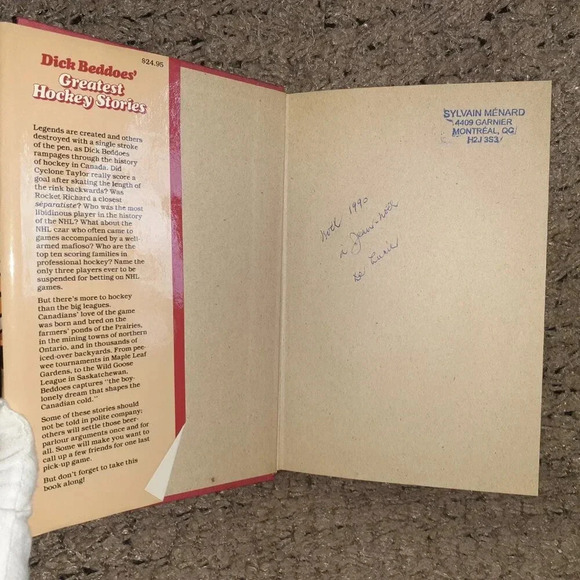 $24.95
Dick Beddoes'
Greatest
Hockey Stories
Legends are created and others
destroyed with a single stroke
of the pen, as Dick Beddoes
rampages through the history
of hockey in Canada. Did
Cyclone Taylor really score a
goal after skating the length of
the rink backwards? Was
Rocket Richard a closest
separatiste? Who was the most
libidinous player in the history
of the NHL? What about the
NHL czar who often came to
games accompanied by a well-
armed mafioso? Who are the
top ten scoring families in
professional hockey? Name the
only three players ever to be
suspended for betting on NHL
games.
But there's more to hockey
than the big leagues.
Canadians' love of the game
was born and bred on the
farmers' ponds of the Prairies,
in the mining towns of northern
Ontario, and in thousands of
iced-over backyards. From pee-
wee tournaments in Maple Leaf
Gardens, to the Wild Goose
League in Saskatchewan,
Beddoes captures "the boy-
lonely dream that shapes the
Canadian cold."
Some of these stories should
not be told in polite company;
others will settle those beer-
parlour arguments once and for
all. Some will make you want to
call up a few friends for one last
pick-up game.
But don't forget to take this
book along!
SYLVAIN MÉNARD
4409 GARNIER
MONTRÉAL, QC
H2J 3S3
Noël 1990
de Lucie